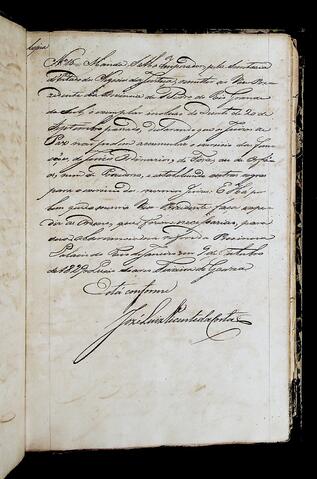 Copia
Nº 26 Manda S. M. o Imperador, pela Secretaria
d'Estado dos Negocios da Justiça, remetter ao Vice Pre-
sidente da Provincia de S. Pedro do Rio Grande
do Sul, o exemplar incluso do Decreto de 20 de
Setembro passado, declarando que os Juizes de
Paz não podem accumular o exercicio das func-
ções, de Juizes Ordinarios, de Fóra, ou de Orfãos,
nem de Vereadores, e estabelecendo outras regras
para o exercicio dos mesmos Juizes. E Ha por
bem que o mesmo Vice Presidente faça expe-
dir as Ordens, que forem necessarias, para
sua observancia na referida Provincia.
Palacio do Rio de Janeiro em 9 de Outubro
de 1829
Está conforme
José Luiz Vicente da Costa